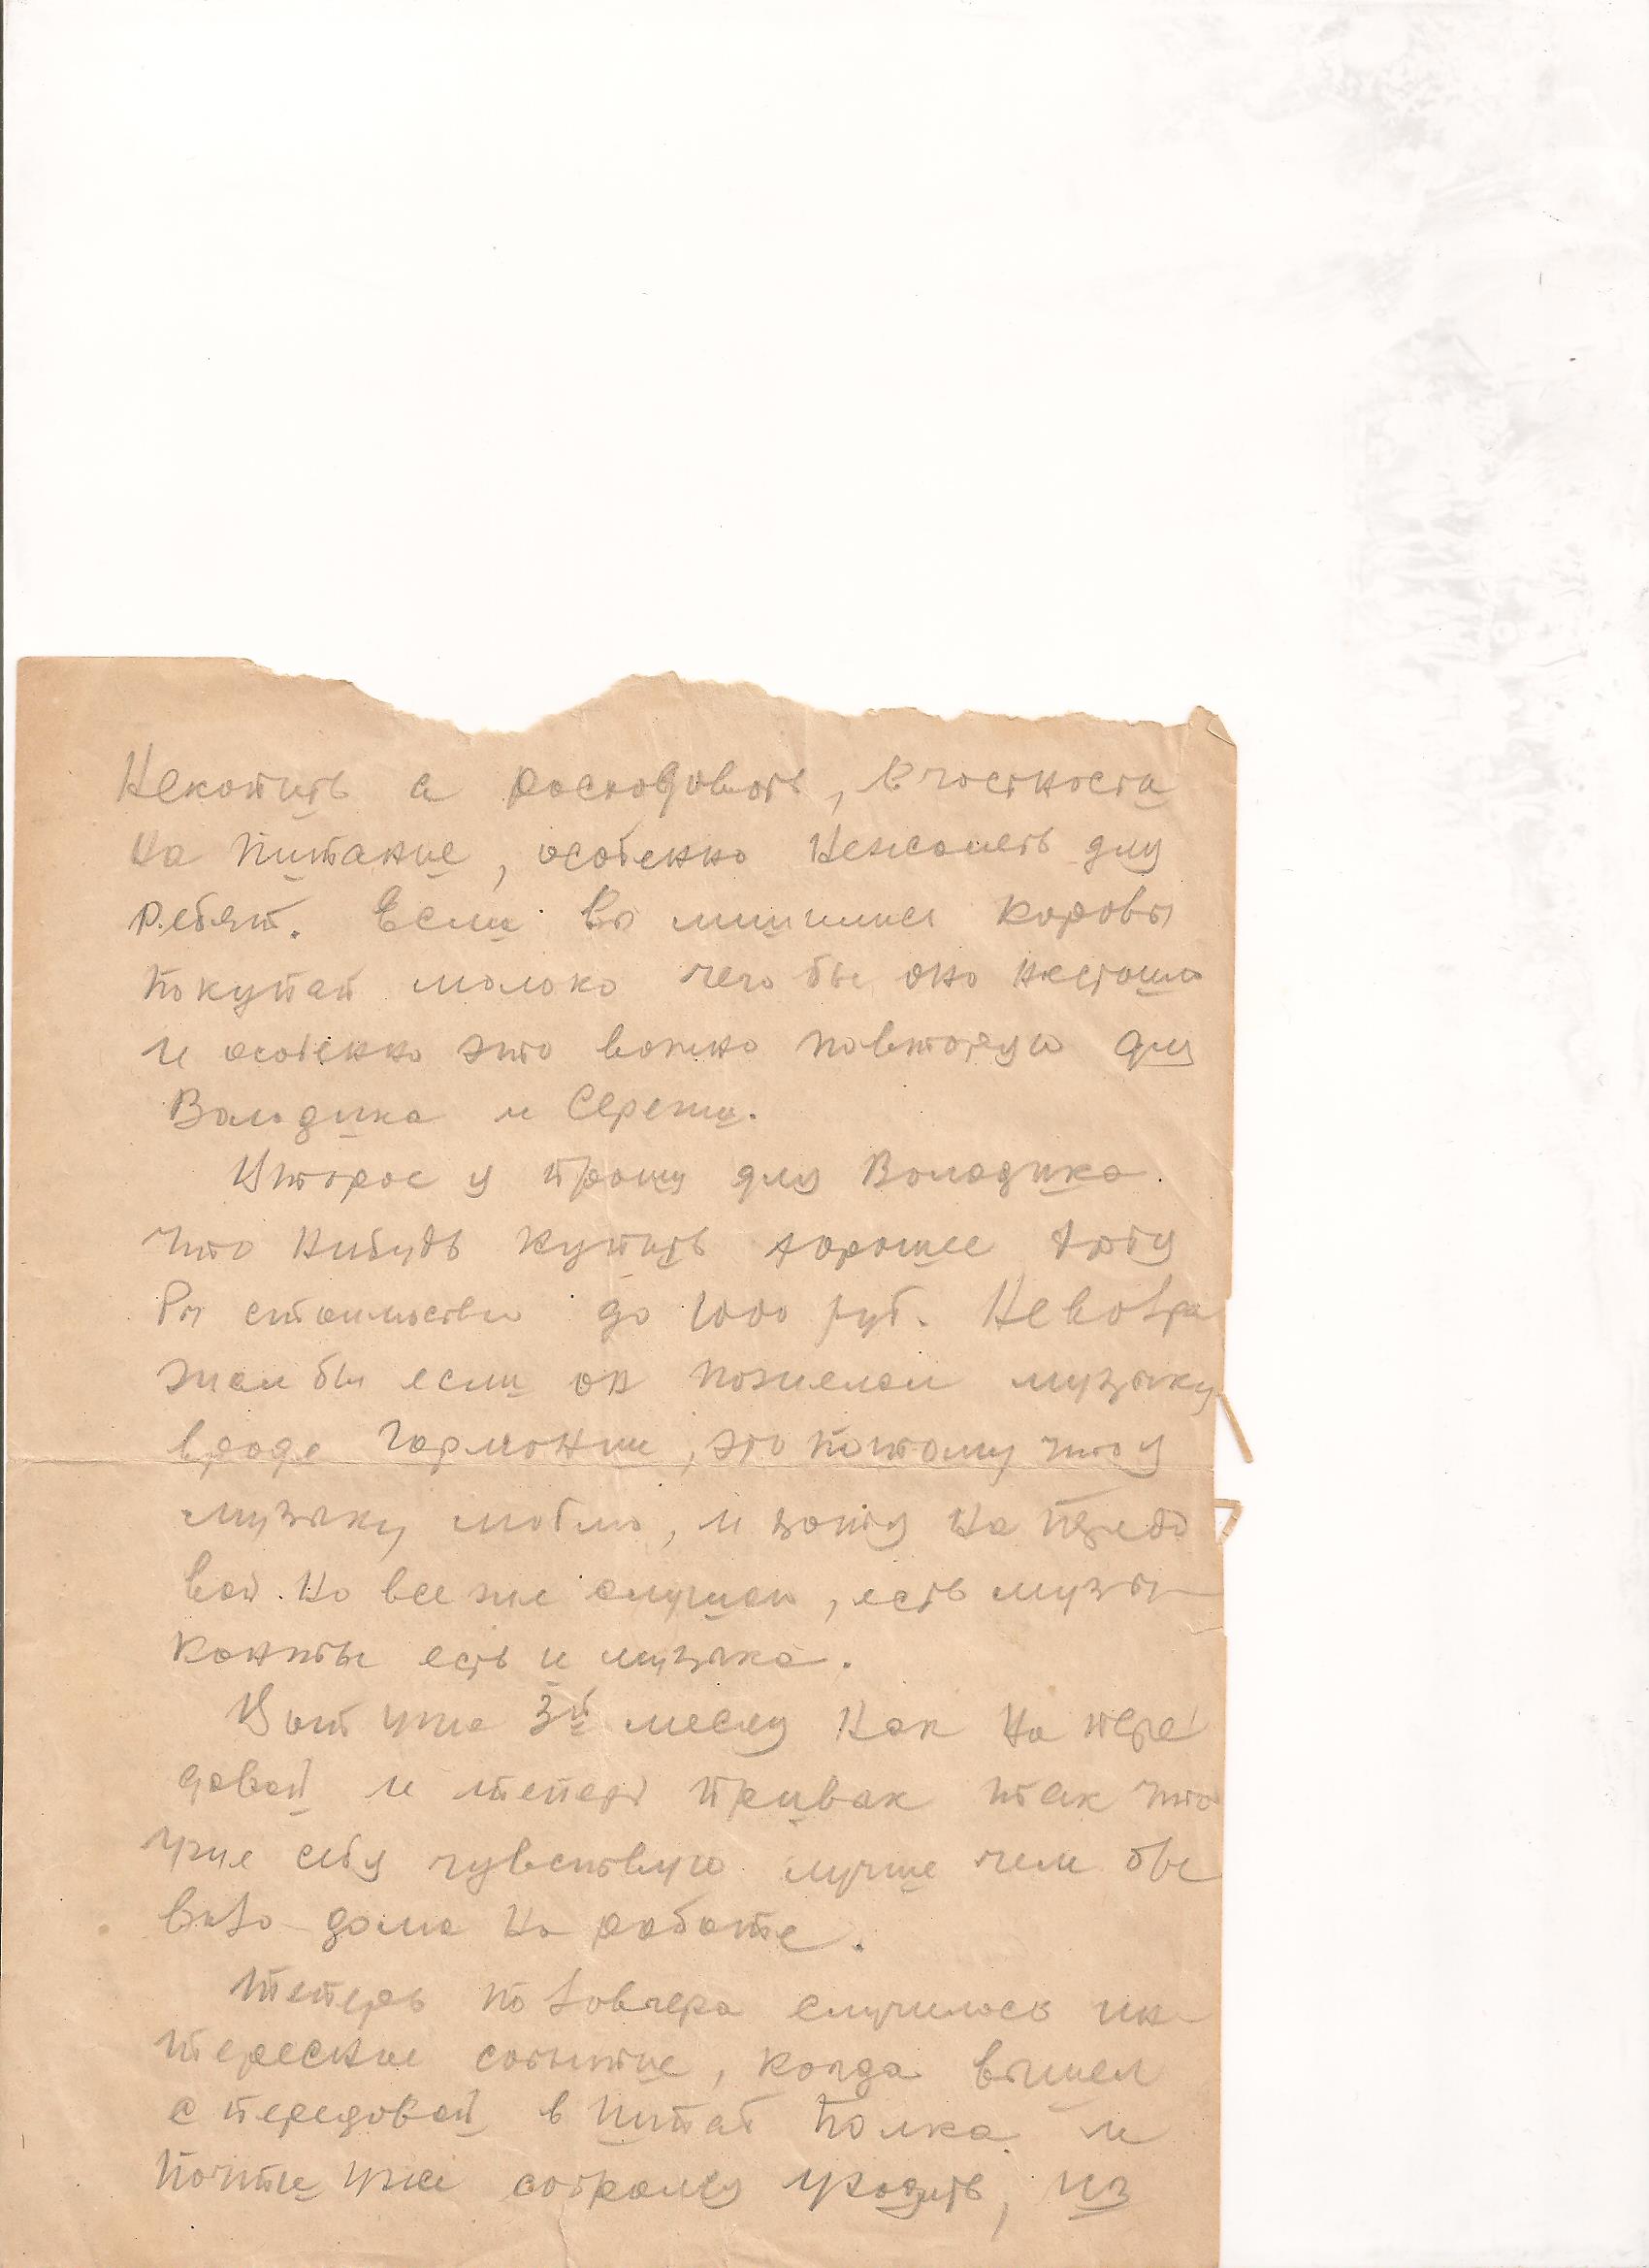 Некопить а росходовать, в частности
на питание, особенно нежалеть для
ребят. Если вы лишились коровы
покупай молоко чего бы оно нестоило
и особенно это важно повторяю для
Володика и Сережи.
Второе я прошу для Володика
что нибудь купить хорошее
стоимостью до 1000 руб. Невозра
жал бы если он пожелал музыку
вроде гормонии, это потому что я
музыку люблю, и хотя на передо
вой. Но все же слушаю, есть музы
канты есть и музыка.
Вот уже 3й месяц как на пере
довой и теперь привак так что
уже себя чувствую лучше чем бы
вало дома на работе.
Теперь позовчера случилось ин-
тересное событие, когда вышел
с передовой в штаб полка и
почти уже собрался уходить, из